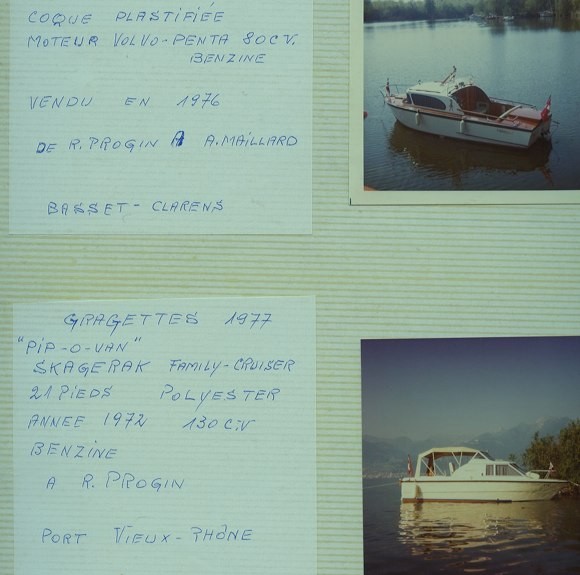 COQUE PLASTIFIÉE
MOTEUR VOLVO-PENTA 80CV.
BENZINE
VENDU EN 1976
DE R. PROGIN A A. MAILLARD
BASSET - CLARENS
GRAGETTES 1977
"PIP-O-VAN"
SKAGERAK FAMILY-CRUISER
21 PIEDS POLYESTER
ANNEE 1972 130 CV
BENZINE
A R. PROGIN
PORT VIEUX-RHÔNE